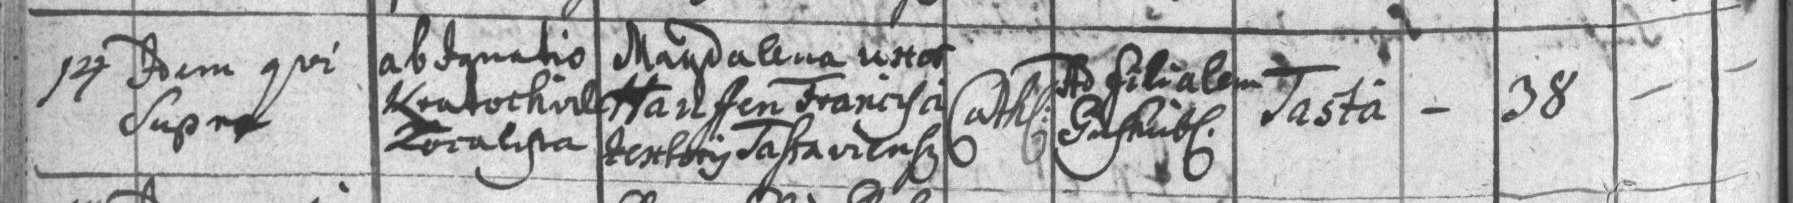 14 Idem qui
supra
ab Ignatio
Kratochvile
Localista
Magdalena uxor
Hanssen Francisci
textoris Tastaviensis
Cathl:
Ad filialem
Tasta - 38 -